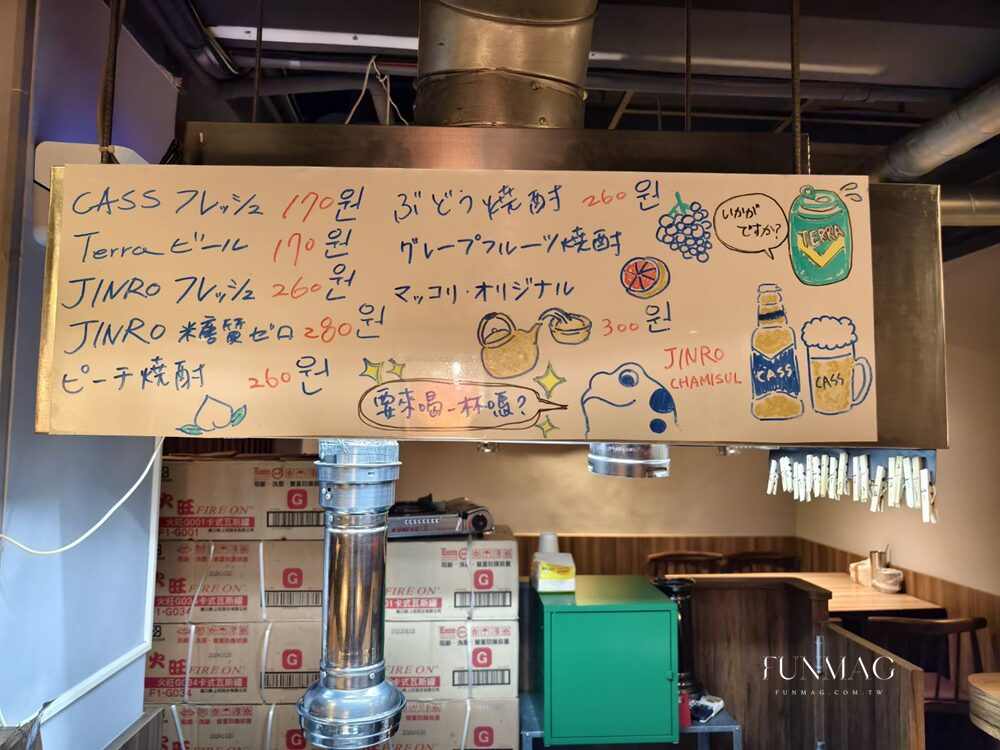 CASS フレッシュ 170원
Terra ビール 170원
JINRO フレッシュ 260원
JINRO 糖質ゼロ 280원
ピーチ焼酎 260원
ぶどう焼酎 260원
グレープフルーツ焼酎
マッコリ・オリジナル
300원
いかが
ですか?
TERRA
JINRO
CHAMISUL
CASS
CASS
要來喝一杯嗎?
火旺 FIRE ON
火旺G001卡式瓦斯罐
F1-G001
G
火旺 FIRE ON
G
F1-G034
FIRE ON
G
火旺 FIRE ON
G
F1-G034
FIRE ON
G
FIRE ON
G
FUNMAG
FUNMAG.COM.TW